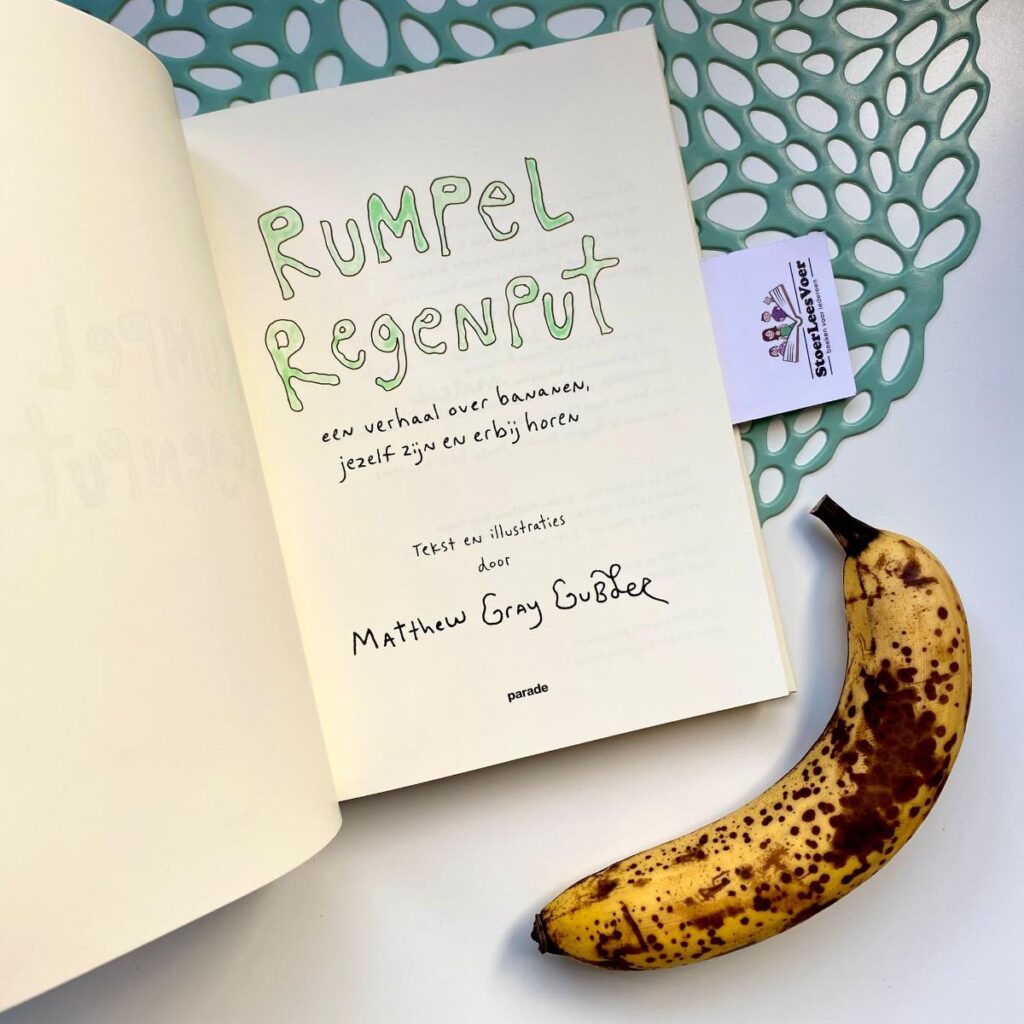 RUMPEL
RegenPut
een verhaal over bananen,
jezelf zijn en erbij horen
Tekst en illustraties
door
Matthew Gray Gubler
parade
StoerLeesVoer
boeken voor iedereen